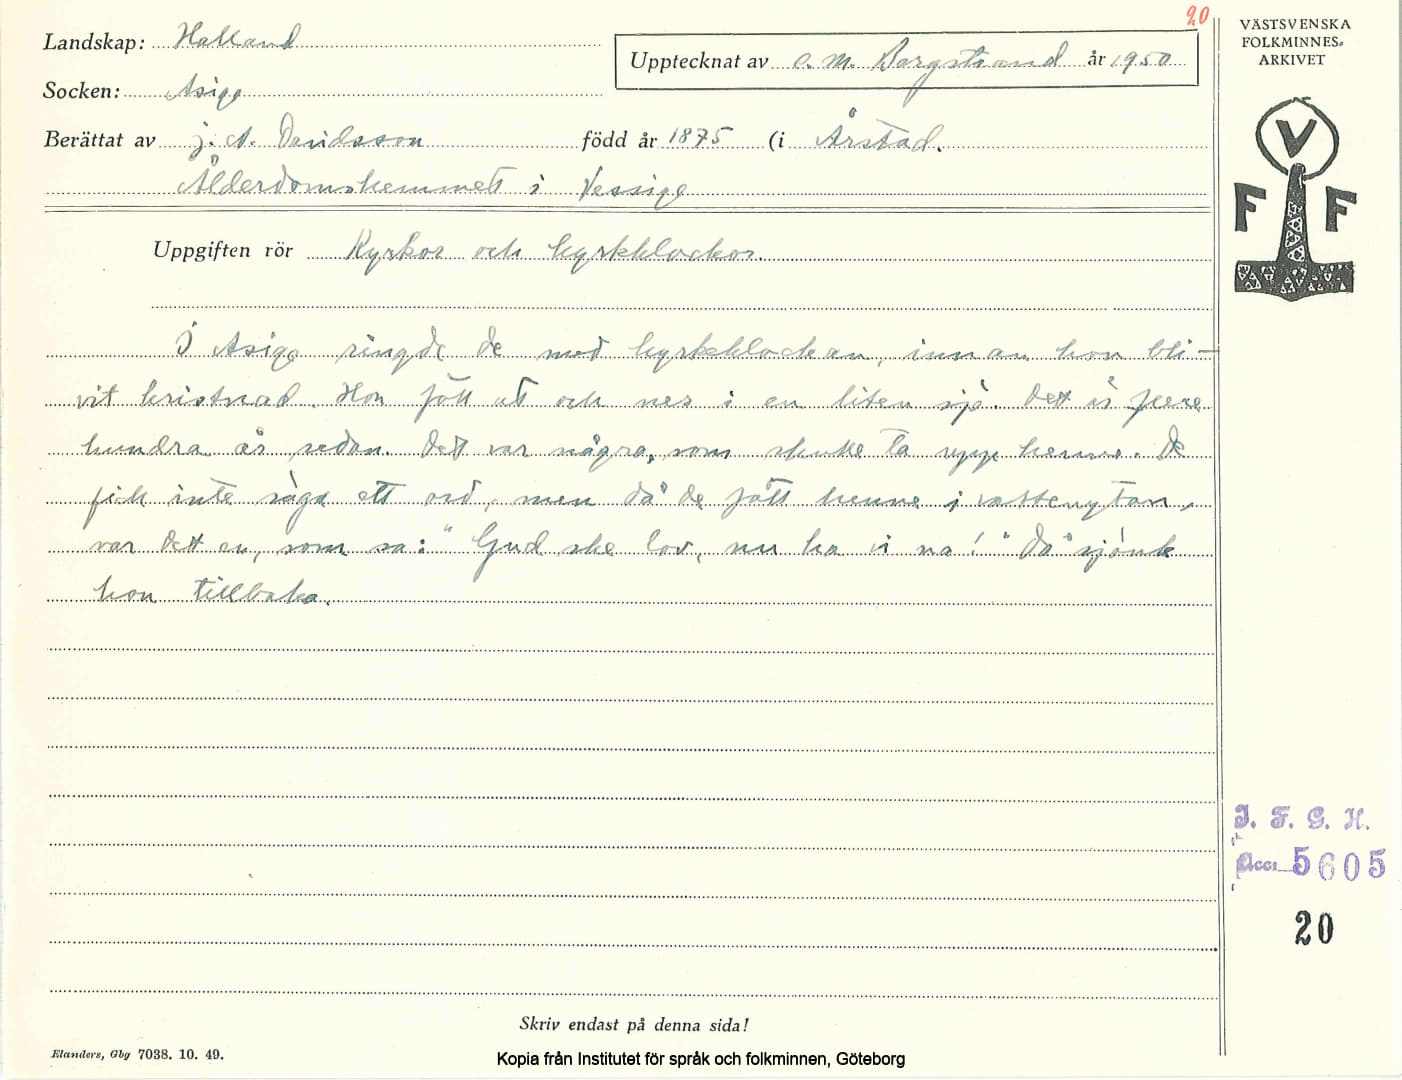 20
Landskap: Halland
Upptecknat av C. M. Bergstrand år 1950
Socken: Asige
Berättat av J. A. Davidsson född år 1875 (i Årstad.
Ålderdomshemmet i Vessige
Uppgiften rör Kyrkor och kyrkklockor.
I Asige ringde de med kyrkeklockan, innan hon bli-
vit kristnad. Hon föll ut och ner i en liten sjö. Det är flere
hundra år sedan. Det var några, som skulle ta upp henne. De
fick inte säga ett ord, men då de fått henne i vattenytan,
var det en, som sa: "Gud ske lov, nu ha vi na!" Då sjönk
hon tillbaka.
Skriv endast på denna sida!
Elanders, Gbg 7038. 10. 49.
Kopia från Institutet för språk och folkminnen, Göteborg
VÄSTSVENSKA
FOLKMINNES-
ARKIVET
V
F F
I. F. G. H.
Acc. 5605
20